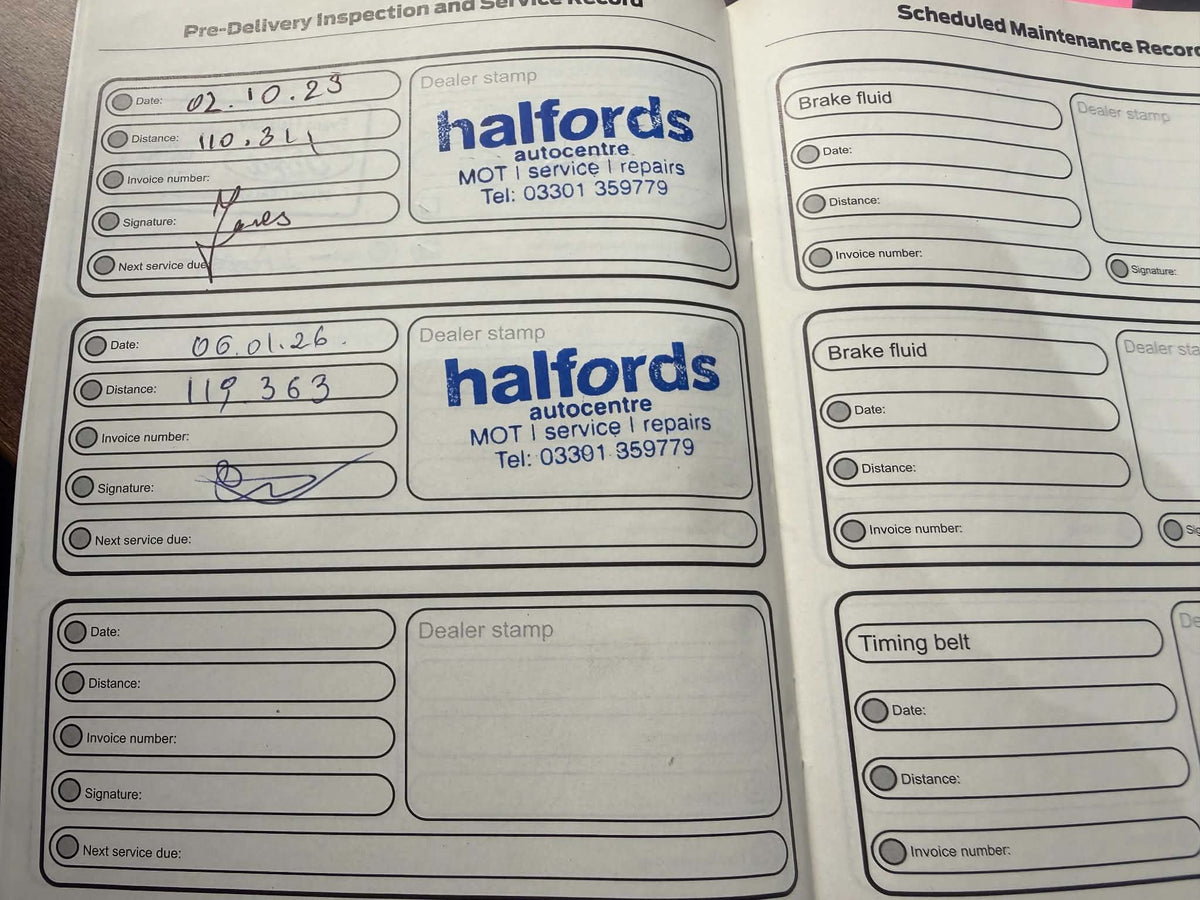 Pre-Delivery Inspection and Service Record
Date: 02.10.23
Distance: 110.311
Invoice number:
Signature:
Next service due
Dealer stamp
halfords
autocentre
MOT | service | repairs
Tel: 03301 359779
Date: 06.01.26.
Distance: 119 363
Invoice number:
Signature:
Next service due:
Dealer stamp
halfords
autocentre
MOT | service | repairs
Tel: 03301 359779
Date:
Distance:
Invoice number:
Signature:
Next service due:
Dealer stamp
Scheduled Maintenance Record
Brake fluid
Date:
Distance:
Invoice number:
Dealer stamp
Signature:
Brake fluid
Date:
Distance:
Invoice number:
Dealer sta
Sig
Timing belt
Date:
Distance:
Invoice number:
De